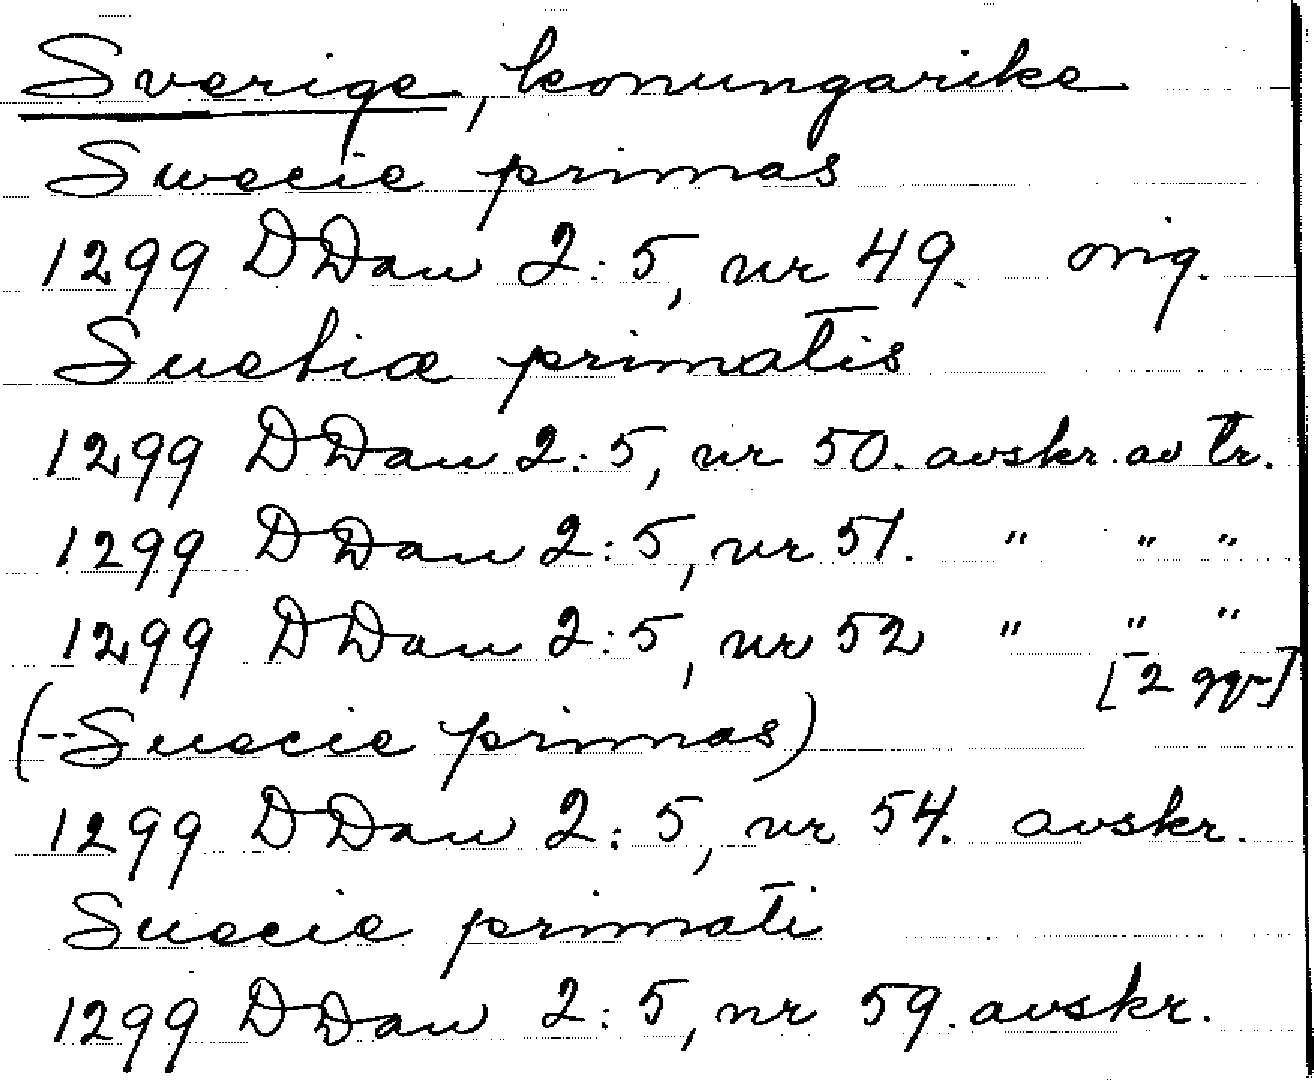 Sverige, konungarike
Swecie primas
1299 DDan 2:5, nr 49. orig.
Suetiæ primatis
1299 DDan 2:5, nr 50. avskr. av tr.
1299 DDan 2:5, nr 51. " " "
1299 DDan 2:5, nr 52 " " "
[2 ggr]
(--Suecie primas)
1299 DDan 2:5, nr 54. avskr.
Suecie primati
1299 DDan 2:5, nr 59. avskr.